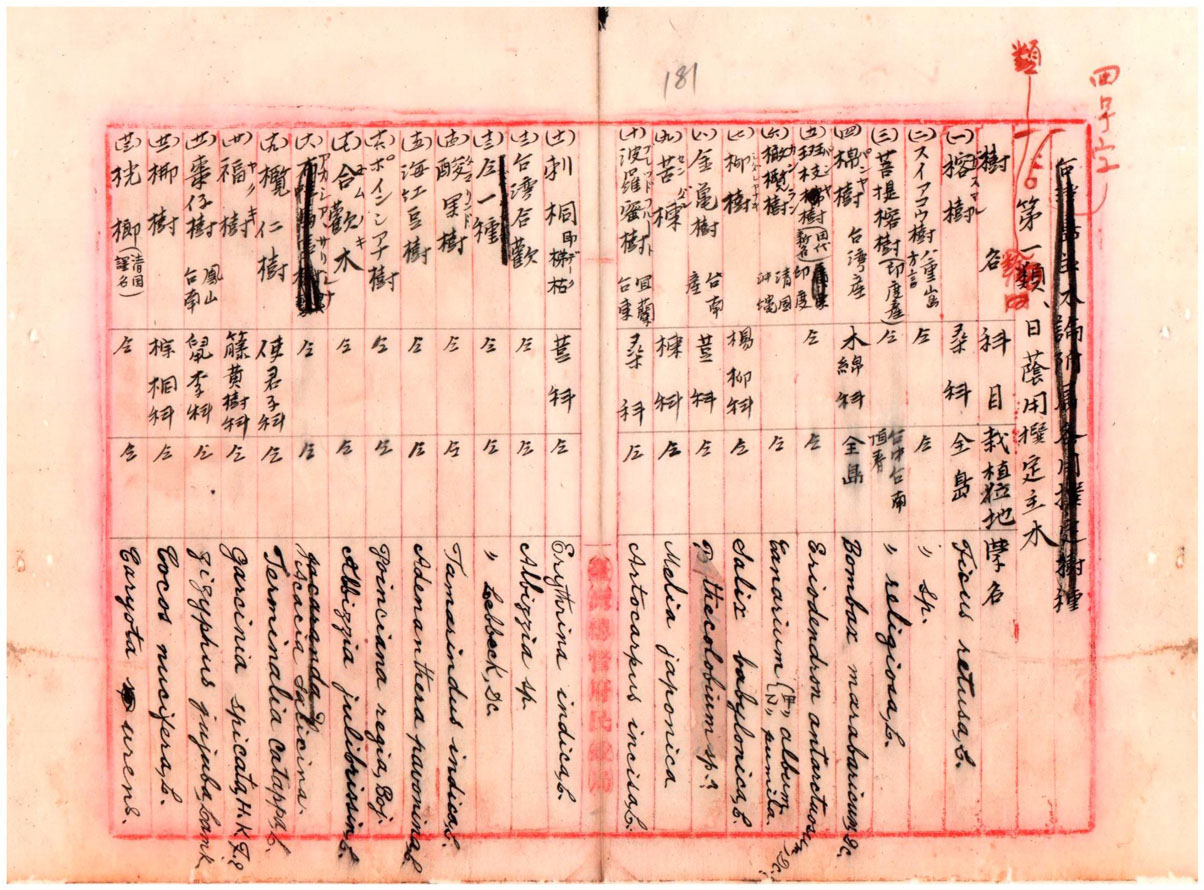 181
四号上
類
第一類、日蔭用撰定主木
樹名 科目 栽植粒地 學名
(一) 榕樹 桑科 全島 Ficus retusa, L.
(二) スイアコウ樹 八重山島方言 仝 仝 〃 sp.
(三) 菩提榕樹 (印度産) 仝 台中台南 〃 religiosa, L.
(四) 棉樹 台湾産 木綿科 全島 Bombax marabaricum Dc.
(五) 班枝樹 (田代新名) 印度 仝 仝 Eriodendron antarctuosum Dc.
(六) 橄欖樹 カンラン 清國 沖縄 仝 Canarium 〃 album 〃 pumila.
(七) 柳樹 楊柳科 仝 Salix babylonica, L.
(八) 金亀樹 台南産 荳科 仝 Pithecolobium sp.?
(九) 苦楝 センダン 楝科 仝 Melia japonica
(十) 波羅蜜樹 宜蘭 台東 桑科 仝 Artocarpus incisa, L.
(十一) 刺桐 荳科 仝 Erythrina indica, L.
(十二) 台湾合歓 仝 仝 Albizzia sp.
(十三) 仝一種 仝 仝 〃 Lebbeck, Dc.
(十四) 酸果樹 仝 仝 Tamarindus indica, L.
(十五) 海红豆樹 仝 仝 Adenanthera pavonina, L.
(十六) ポインシアナ樹 仝 仝 Poinciana regia, Boj.
(十七) 合歓木 ネムノキ 仝 仝 Albizzia julibrissin, L.
(十八) アカシア、サリ 仝 仝 Jacaranda Acacia Salicina.
(十九) 欖仁樹 使君子科 仝 Terminalia catappa, L.
(廿) 福樹 藤黄樹科 仝 Garcinia spicata, H.K.F.
(廿一) 棗仔樹 鳳山 台南 鼠李科 仝 Zizyphus jujuba, Lank.
(廿二) 椰樹 棕梠科 仝 Cocos nucifera, L.
(廿三) 桄榔 (清国譯名) 仝 仝 Caryota urens.
臺灣總督府民政局